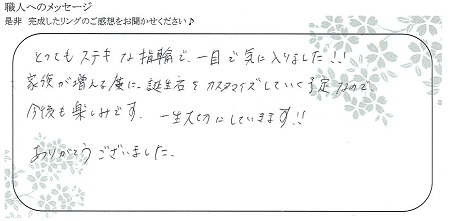 職人へのメッセージ
是非 完成したリングのご感想をお聞かせください♪
とってもステキな指輪で、一目で気に入りました!!
家族が増える度に誕生石をカスタマイズしていく予定なので、
今後も楽しみです。一生大切にしていきます!!
ありがとうございました。